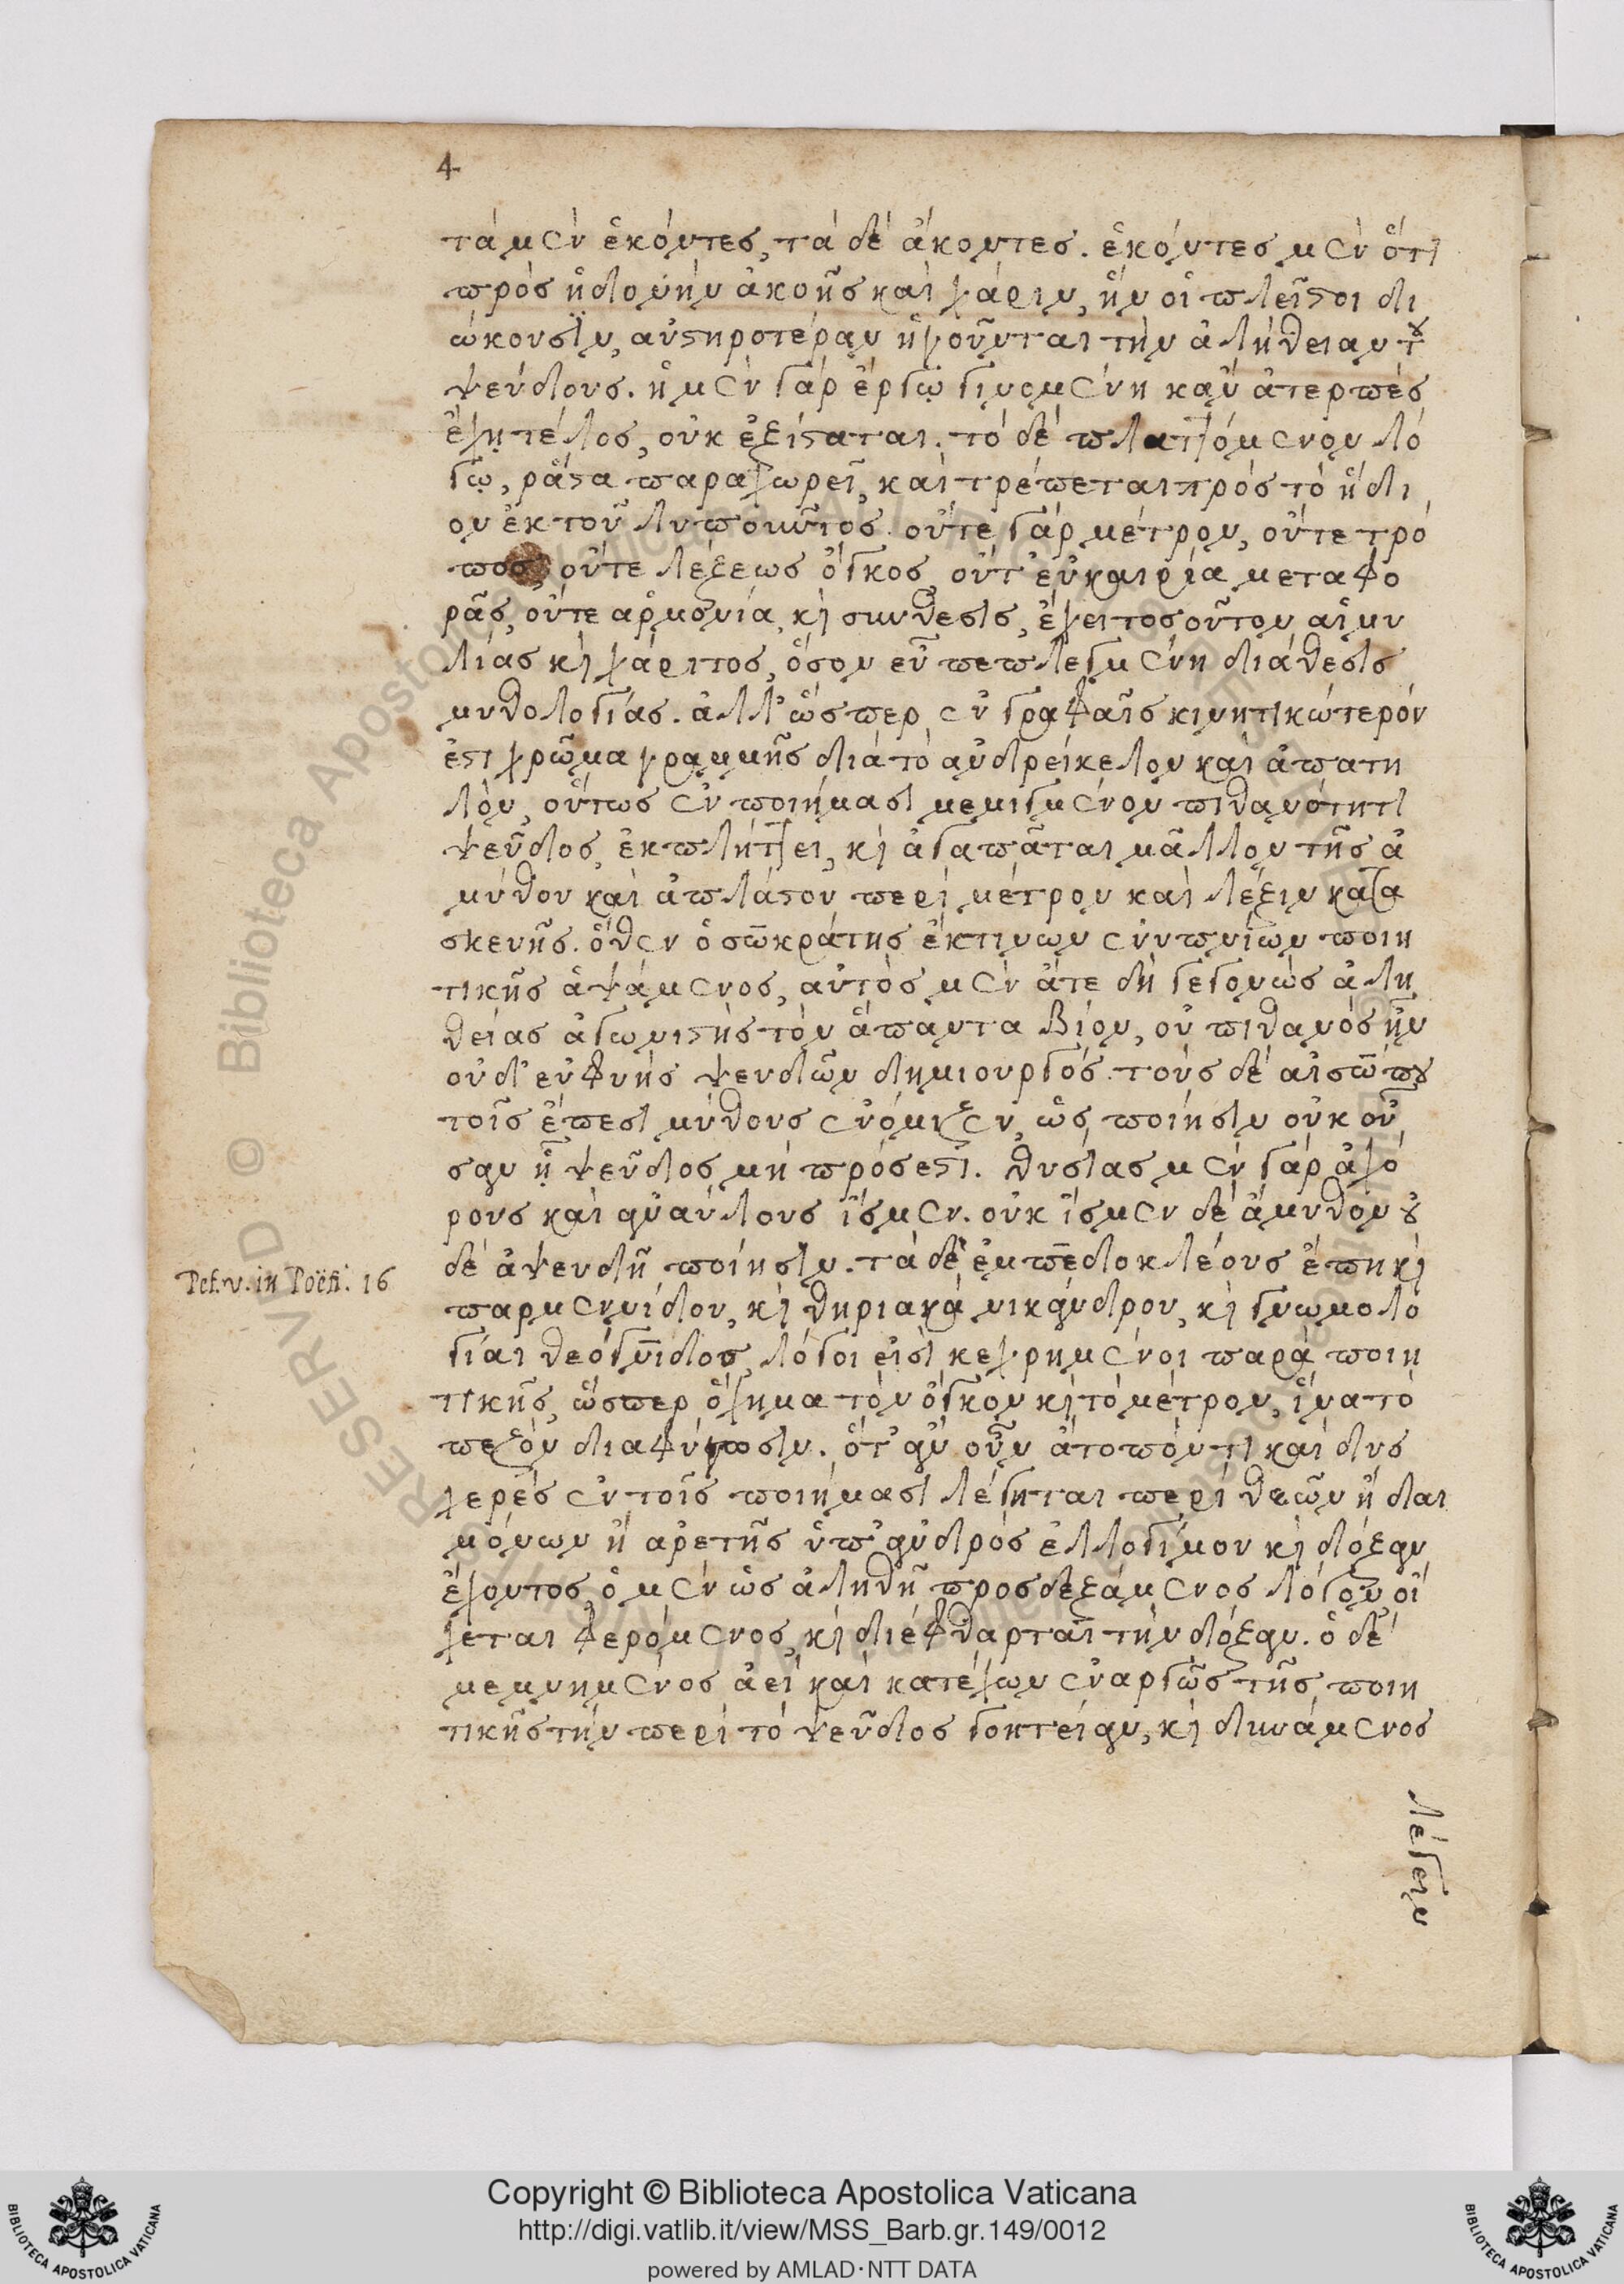 4
τὰ μὲν ἑκόντες, τὰ δὲ ἄκοντες. ἑκόντες μὲν ὅτι
πρὸς ἡδονὴν ἀκοῆς καὶ χάριν, ἣν οἱ πλεῖστοι δι
ώκουσιν, αὐστηροτέραν ἡγοῦνται τὴν ἀλήθειαν τοῦ
ψεύδους. ἡ μὲν γὰρ ἔργῳ γινομένη κἂν ἀτερπὲς
ἔχῃ τέλος, οὐκ ἐξίσταται. τὸ δὲ πλαττόμενον λό
γῳ, ῥᾷστα παραχωρεῖ, καὶ τρέπεται πρὸς τὸ ἥδι
ον ἐκ τοῦ λυποῦντος. οὔτε γὰρ μέτρον, οὔτε τρό
πος, οὔτε λέξεως ὄγκος, οὔτ' εὐκαιρία μεταφο
ρᾶς, οὔτε ἁρμονία, καὶ σύνθεσις, ἔχει τοσοῦτον αἱμυ
λίας καὶ χάριτος, ὅσον εὖ πεπλεγμένη διάθεσις
μυθολογίας. ἀλλ' ὥσπερ ἐν γραφαῖς κινητικώτερόν
ἐστι χρῶμα γραμμῆς διὰ τὸ ἀνδρείκελον καὶ ἀπατη
λόν, οὕτως ἐν ποιήμασι μεμιγμένον πιθανότητι
ψεῦδος, ἐκπλήττει, καὶ ἀγαπᾶται μᾶλλον τῆς ἀ
μύθου καὶ ἀπλάστου περὶ μέτρον καὶ λέξιν κατα
σκευῆς. ὅθεν ὁ σωκράτης ἔκ τινων ἐνυπνίων ποιη
τικῆς ἁψάμενος, αὐτὸς μὲν ἅτε δὴ γεγονὼς ἀλη
θείας ἀγωνιστὴς τὸν ἅπαντα βίον, οὐ πιθανὸς ἦν
οὐδ' εὐφυὴς ψευδῶν δημιουργός. τοὺς δὲ αἰσώπου
τοῖς ἔπεσι μύθους ἐνόμιζεν, ὡς ποίησιν οὐκ οὖ
σαν ᾗ ψεῦδος μὴ πρόσεστι. θυσίας μὲν γὰρ ἀχό
ρους καὶ ἀναύλους ἴσμεν. οὐκ ἴσμεν δὲ ἄμυθον οὐ
δὲ ἀψευδῆ ποίησιν. τὰ δὲ ἐμπεδοκλέους ἔπη καὶ
παρμενίδου, καὶ θηριακὰ νικάνδρου, καὶ γνωμολο
γίαι θεόγνιδος, λόγοι εἰσὶ κεχρημένοι παρὰ ποιη
τικῆς, ὥσπερ ὄχημα τὸν ὄγκον καὶ τὸ μέτρον, ἵνα τὸ
πεζὸν διαφύγωσιν. ὅτ' ἂν οὖν ἄτοπόν τι καὶ δυς
χερὲς ἐν τοῖς ποιήμασι λέγηται περὶ θεῶν ἢ δαι
μόνων ἢ ἀρετῆς ὑπ' ἀνδρὸς ἐλλογίμου καὶ δόξαν
ἔχοντος, ὁ μὲν ὡς ἀληθῆ προσδεξάμενος λόγον, οἴ
χεται φερόμενος, καὶ διέφθαρται τὴν δόξαν. ὁ δὲ
μεμνημένος ἀεὶ καὶ κατέχων ἐναργῶς τῆς ποιη
τικῆς τὴν περὶ τὸ ψεῦδος γοητείαν, καὶ δυνάμενος
λέγειν
Pet. v. in Poësi. 16
Copyright © Biblioteca Apostolica Vaticana
http://digi.vatlib.it/view/MSS_Barb.gr.149/0012
powered by AMLAD·NTT DATA
BIBLIOTECA APOSTOLICA VATICANA
BIBLIOTECA APOSTOLICA VATICANA